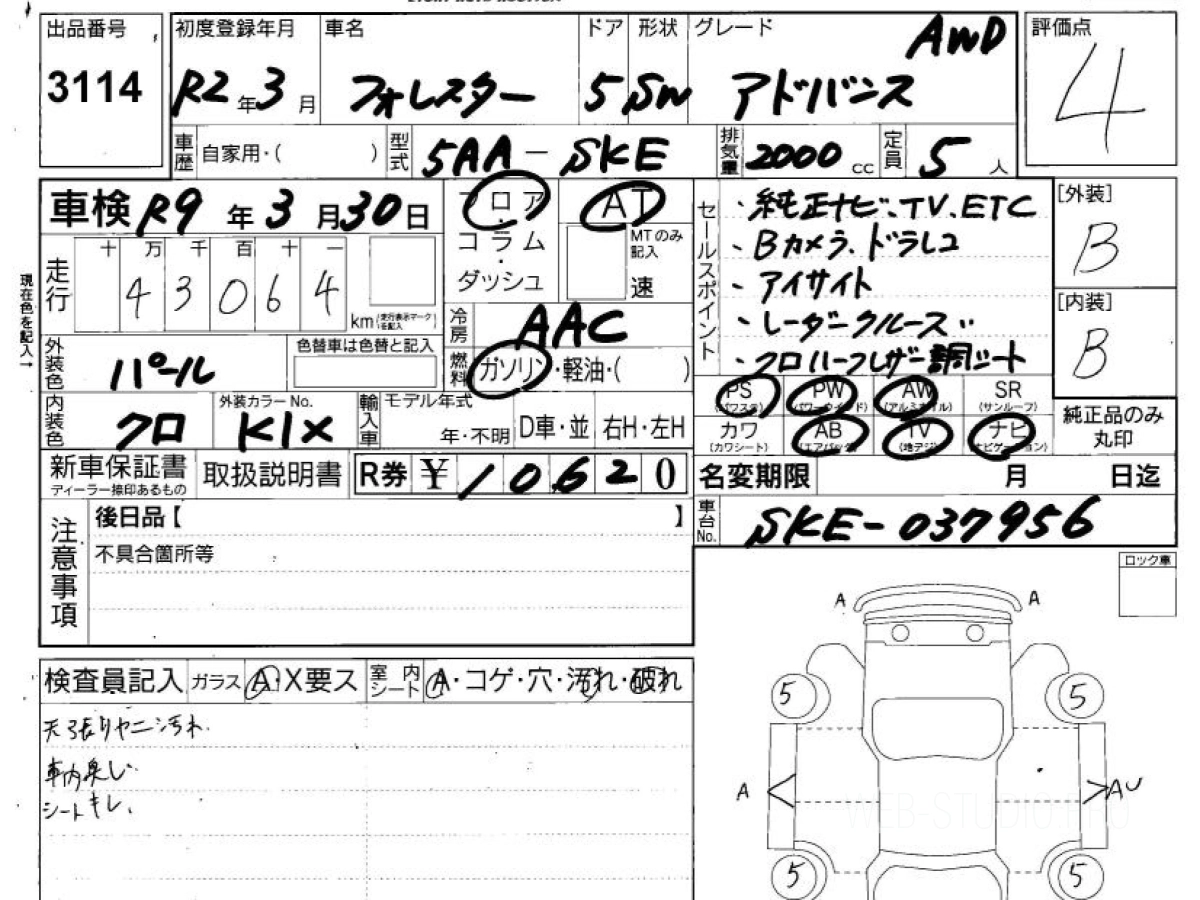 出品番号
3114
初度登録年月
R2年3月
車名
フォレスター
ドア
5
形状
SW
グレード
AWD
アドバンス
評価点
4
車歴
自家用・( )
型式
5AA-SKE
排気量
2000 cc
定員
5人
車検 R9年3月30日
フロア
・
コラム
・
ダッシュ
AT
MTのみ
記入
速
セールスポイント
・純正ナビ、TV、ETC
・Bカメラ、ドラレコ
・アイサイト
・レーダークルーズ
・クロハーフレザー調シート
[外装]
B
[内装]
B
走行
十 万 千 百 十 一
4 3 0 6 4
km (走行表示マークを記入)
現在色を記入→
冷房
AAC
外装色
パール
色替車は色替と記入
燃料
ガソリン・軽油・( )
内装色
クロ
外装カラーNo.
K1X
輸入車
モデル年式
年・不明
D車・並
右H・左H
PS
(パワステ)
PW
(パワーウインド)
AW
(アルミホイル)
SR
(サンルーフ)
カワ
(カワシート)
AB
(エアバッグ)
TV
(地デジ)
ナビ
(ナビゲーション)
純正品のみ
丸印
新車保証書
ディーラー捺印あるもの
取扱説明書
R券 ¥10620
名変期限 月 日迄
車台No.
SKE-037956
注意事項
後日品【 】
不具合箇所等
ロック車
検査員記入
ガラス
A・X要ス
室内シート
A・コゲ・穴・汚れ・破れ
天張りヤニ汚れ.
車内臭い.
シートキレ.
A
A
5
5
A
AU
5
5
WEB-STUDIO.PRO